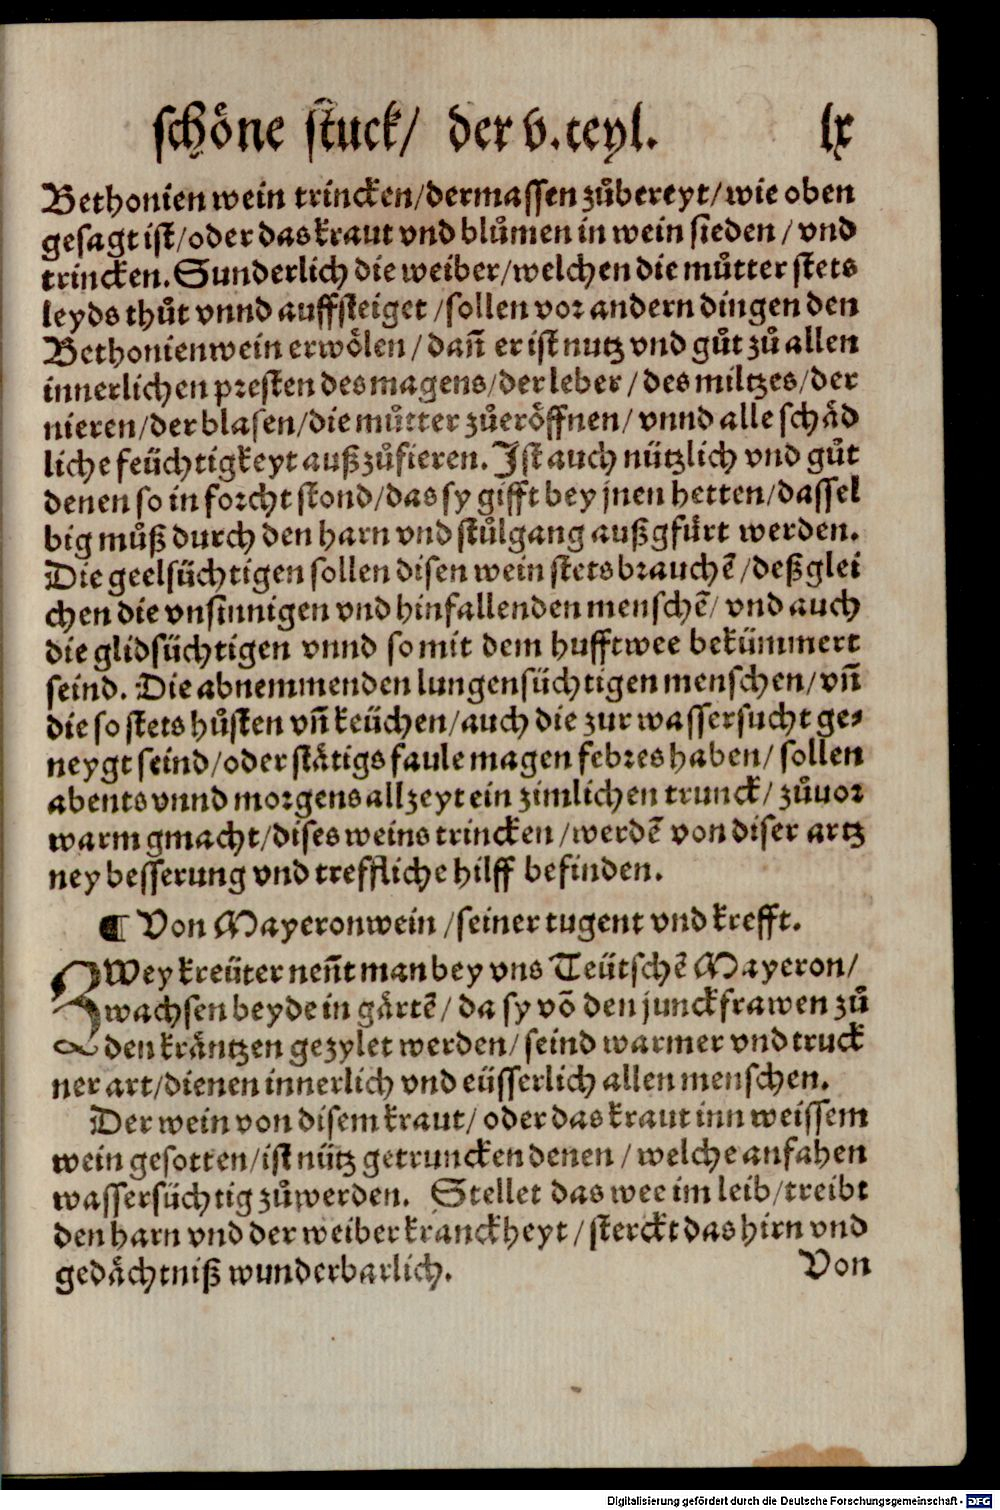 schöne stuck/ der v. teyl. lx
Bethonien wein trincken/dermassen zůbereyt/wie oben
gesagt ist/oder das kraut vnd blůmen in wein sieden/ vnd
trincken. Sunderlich die weiber/welchen die můtter stets
leyds thůt vnnd auffsteiget/sollen vor andern dingen den
Bethonienwein erwölen/dañ er ist nutz vnd gůt zů allen
innerlichen presten des magens/der leber/ des miltzes/der
nieren/der blasen/die můtter zůeröffnen/ vnnd alle schäd
liche feüchtigkeyt außzůfieren. Ist auch nützlich vnd gůt
denen so in forcht stond/das sy gifft bey jnen hetten/dassel
big můß durch den harn vnd stůlgang außgfürt werden.
Die geelsüchtigen sollen disen wein stets brauchē/deßglei
chen die vnsinnigen vnd hinfallenden menschē/ vnd auch
die glidsüchtigen vnnd so mit dem hufftwee bekümmert
seind. Die abnemmenden lungensüchtigen menschen/vñ
die so stets hůsten vñ keüchen/auch die zur wassersucht ge⸗
neygt seind/oder stätigs faule magen febres haben/ sollen
abents vnnd morgens allzeyt ein zimlichen trunck/ zůuor
warm gmacht/dises weins trincken/werdē von diser artz
ney besserung vnd treffliche hilff befinden.
¶ Von Mayeronwein/seiner tugent vnd krefft.
ZWey kreüter neñt man bey vns Teütschē Mayeron/
wachsen beyde in gärtē/ da sy võ den junckfrawen zů
den kräntzen gezylet werden/ seind warmer vnd truck
ner art/dienen innerlich vnd eüsserlich allen menschen.
Der wein von disem kraut/ oder das kraut inn weissem
wein gesotten/ist nütz getruncken denen/ welche anfahen
wassersüchtig zůwerden. Stellet das wee im leib/treibt
den harn vnd der weiber kranckheyt/sterckt das hirn vnd
gedächtniß wunderbarlich. Von
Digitalisierung gefördert durch die Deutsche Forschungsgemeinschaft - DFG